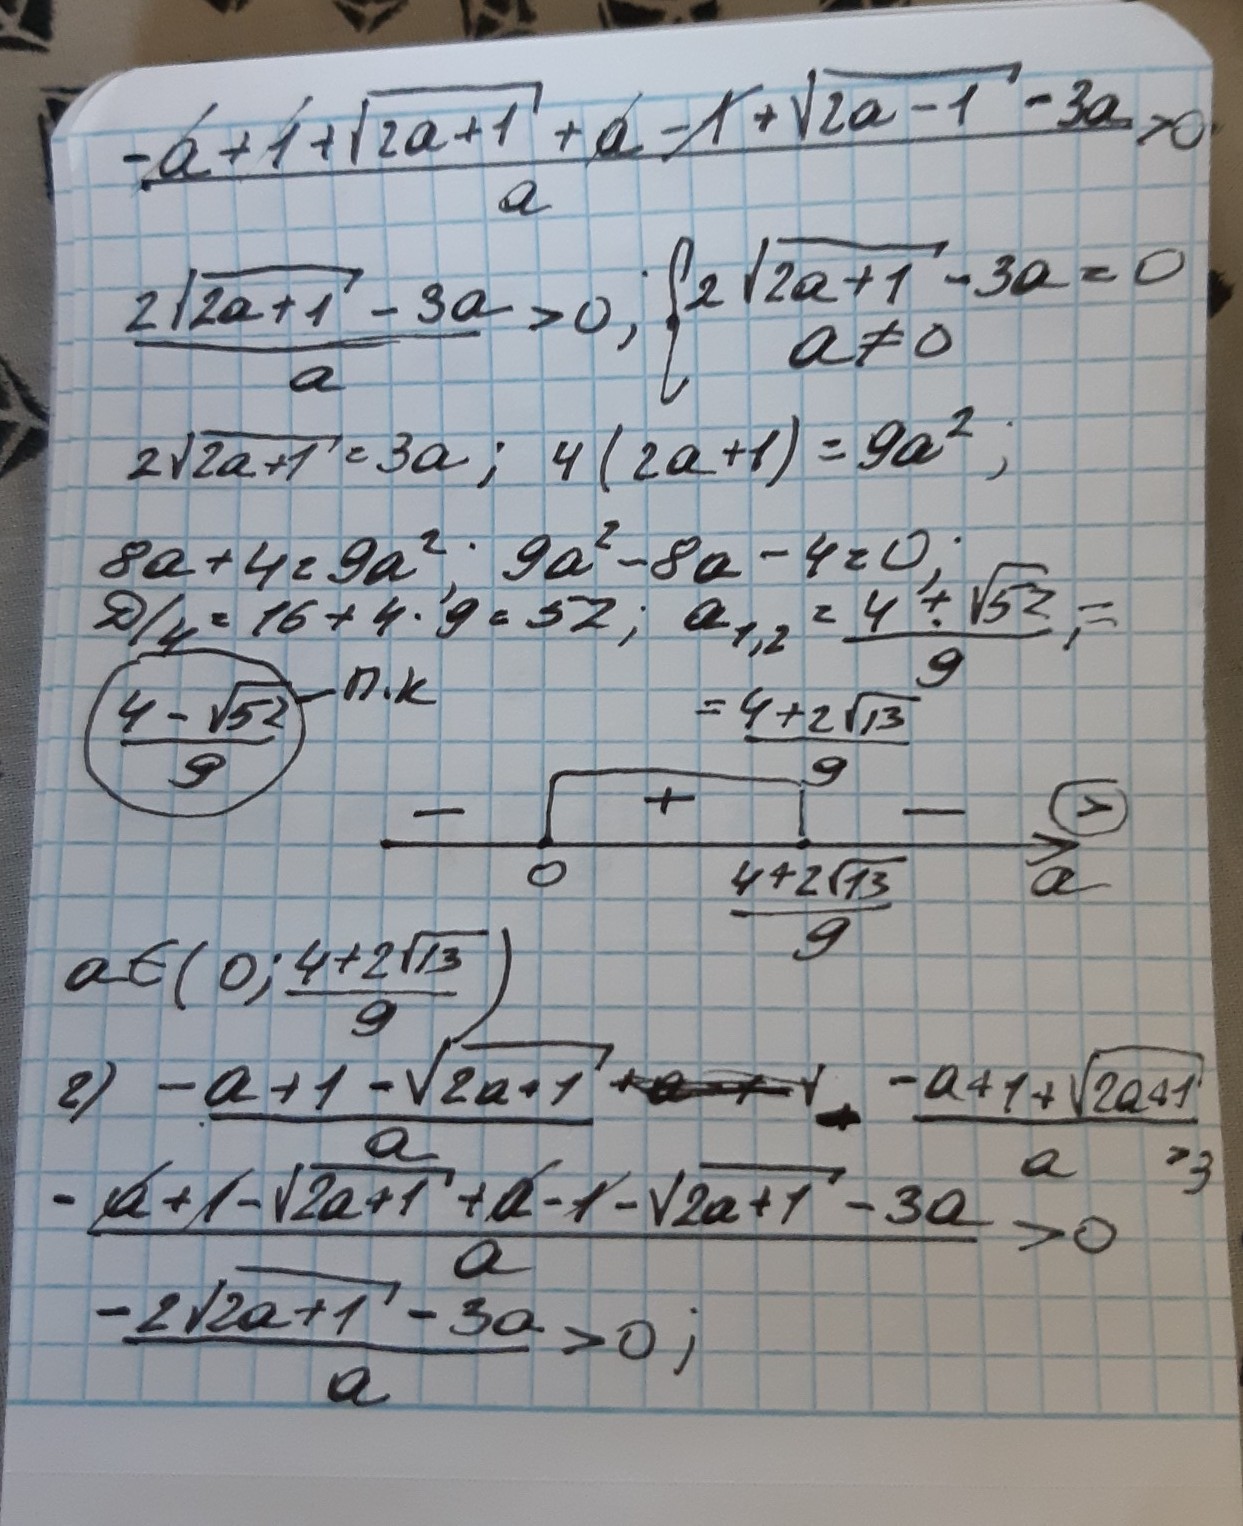 (-a + 1 + √(2a+1) + a - 1 + √(2a-1) - 3a)/a > 0
(2√(2a+1) - 3a)/a > 0; { 2√(2a+1) - 3a = 0
a ≠ 0
2√(2a+1) = 3a; 4(2a+1) = 9a²;
8a+4 = 9a²; 9a² - 8a - 4 = 0;
D/4 = 16 + 4·9 = 52; a₁,₂ = (4 ± √52)/9; =
(4 - √52)/9 - п.к = (4+2√13)/9
- + - >
0 (4+2√13)/9 a
a ∈ (0; (4+2√13)/9)
2) (-a+1-√(2a+1))/a - (-a+1+√(2a+1))/a > 3
(-a+1-√(2a+1) + a - 1 - √(2a+1) - 3a)/a > 0
(-2√(2a+1) - 3a)/a > 0;